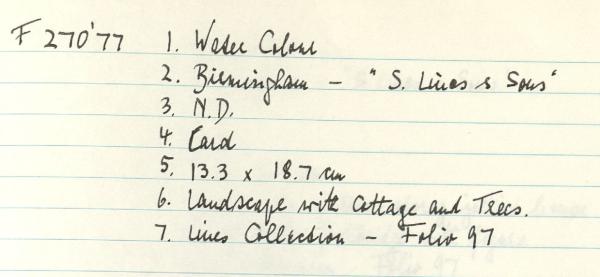 F 270'77 1. Water Colour
2. Birmingham - "S. Lines & Sons"
3. N.D.
4. Card
5. 13.3 x 18.7 cm
6. Landscape with Cottage and Trees.
7. Lines Collection - Folio 97